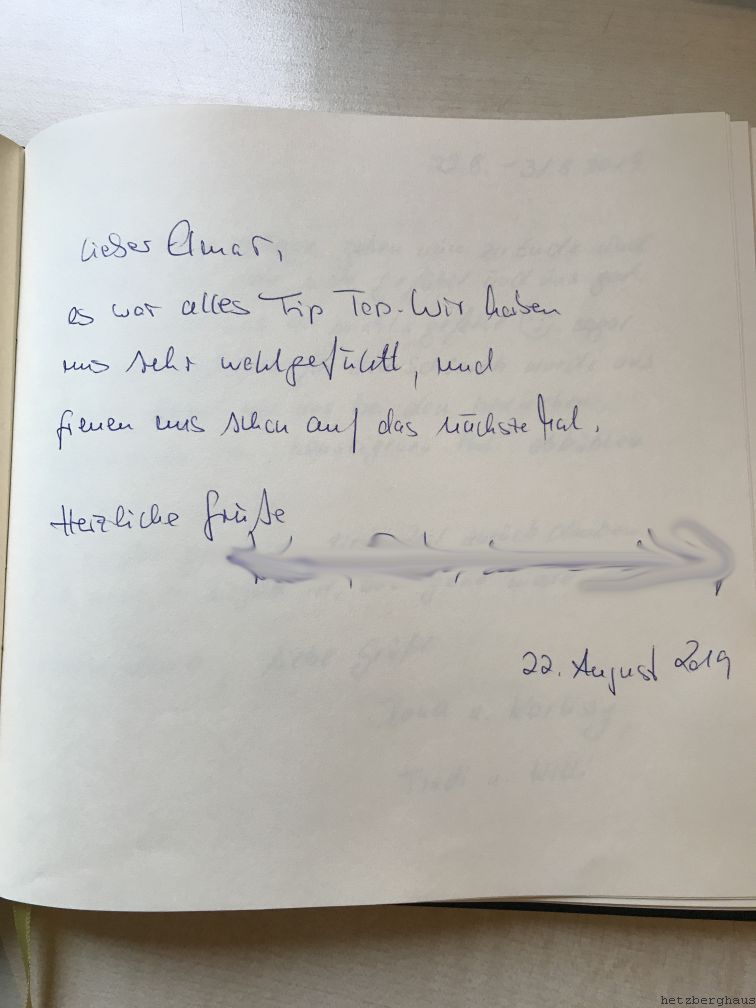 Lieber Elmar,
es war alles Tip Top. Wir haben
uns sehr wohlgefühlt, und
freuen uns schon auf das nächste Mal.
Herzliche Grüße
22. August 2019
hetzberghaus